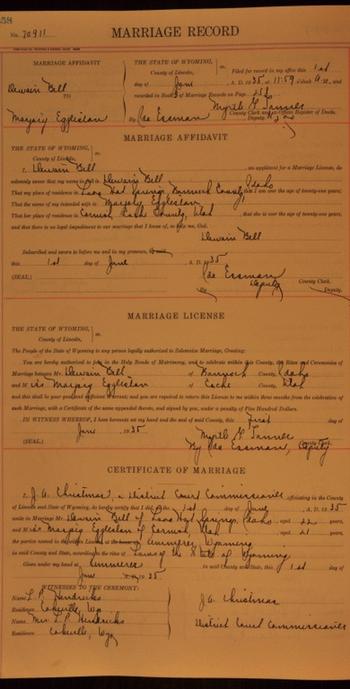 No. 20911 MARRIAGE RECORD
MARRIAGE AFFIDAVIT
Dewain Bell
TO
Marjory Eggleston
THE STATE OF WYOMING,
County of Lincoln,
Filed for record in my office this 1st
day of June A. D. 1935 at 11:59 o'clock A. M., and
recorded in Book of Marriage Records on Page 258
Myrtle G. Tanner
County Clerk and Ex-Officio Register of Deeds.
By Rae Essman Deputy
MARRIAGE AFFIDAVIT
THE STATE OF WYOMING,
County of Lincoln,
I, Dewain Bell, an applicant for a Marriage License, do
solemnly swear that my name is Dewain Bell
That my place of residence is Lava Hot Springs, Bannock County, Idaho that I am over the age of twenty-one years;
That the name of my intended wife is Marjory Eggleston
That her place of residence is Cache County, Utah, that she is over the age of twenty-one years,
and that there is no legal impediment to our marriage that I know of, so help me, God.
Dewain Bell
Subscribed and sworn to before me and in my presence,
this 1st day of June, A. D. 1935
Rae Essman
(SEAL) County Clerk.
By Deputy
MARRIAGE LICENSE
THE STATE OF WYOMING,
County of Lincoln,
The People of the State of Wyoming to any person legally authorized to Solemnize Marriage, Greeting:
You are hereby authorized to join in the Holy Bonds of Matrimony, and to celebrate within this County, the Rites and Ceremonies
of Marriage between Mr. Dewain Bell of Bannock County, Idaho
and Miss Marjory Eggleston of Cache County, Utah
and this shall be your good and sufficient warrant; and you are required to return this License to me within three months from the celebration of
such Marriage, with a Certificate of the same appended thereto, and signed by you, under a penalty of Five Hundred Dollars.
IN WITNESS WHEREOF, I have hereunto set my hand and the seal of said County, this First day of
June, 1935
Myrtle G. Tanner
(SEAL)
By Rae Essman, Deputy
CERTIFICATE OF MARRIAGE
I, J. A. Christmas, a District Court Commissioner officiating in the County
of Lincoln and State of Wyoming, do hereby certify that I did on the 1st day of June, A. D. 1935
unite in Marriage Mr. Dewain Bell of Lava Hot Springs, Idaho, aged 22 years,
and Miss Marjory Eggleston of Utah, aged 21 years,
the parties named in the Wyoming
in said County and State, according to the Laws of the State of Wyoming
Given under my hand at in said County and State, this 1st day of
June 1935
WITNESSES TO THE CEREMONY:
Name L. P. Hendricks
Residence Cokeville, Wyo
Name Mrs. L. P. Hendricks
Residence Cokeville, Wyo
J. A. Christmas
District Court Commissioner